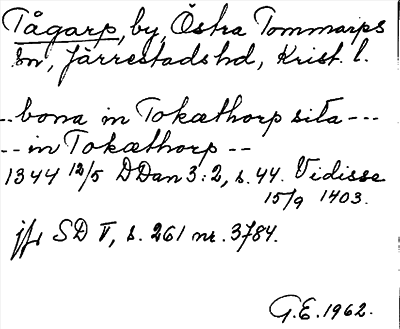 Tågarp, by, Östra Tommarps
sn, Järrestads hd, Krist. l.
--bona in Tokæthorp sita---
-- in Tokæthorp --
1344 12/5 DDan 3:2, s. 44. Vidisse
15/9 1403.
jfr SD V, s. 261 nr. 3784.
G.E. 1962.